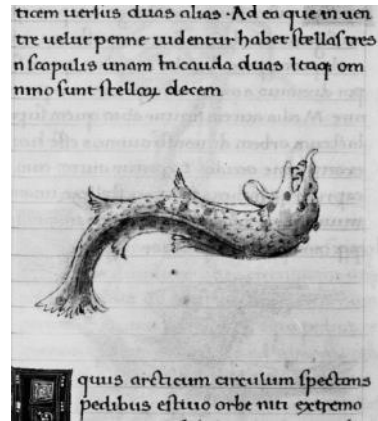 ticem uersus duas alias · Ad ea que in uen
tre uelut penne uidentur habet stellas tres
n scapulis unam In cauda duas Itaq; om
nino sunt stellaꝝ decem
quus arcticum circulum spectans
pedibus estiuo orbe niti extremo